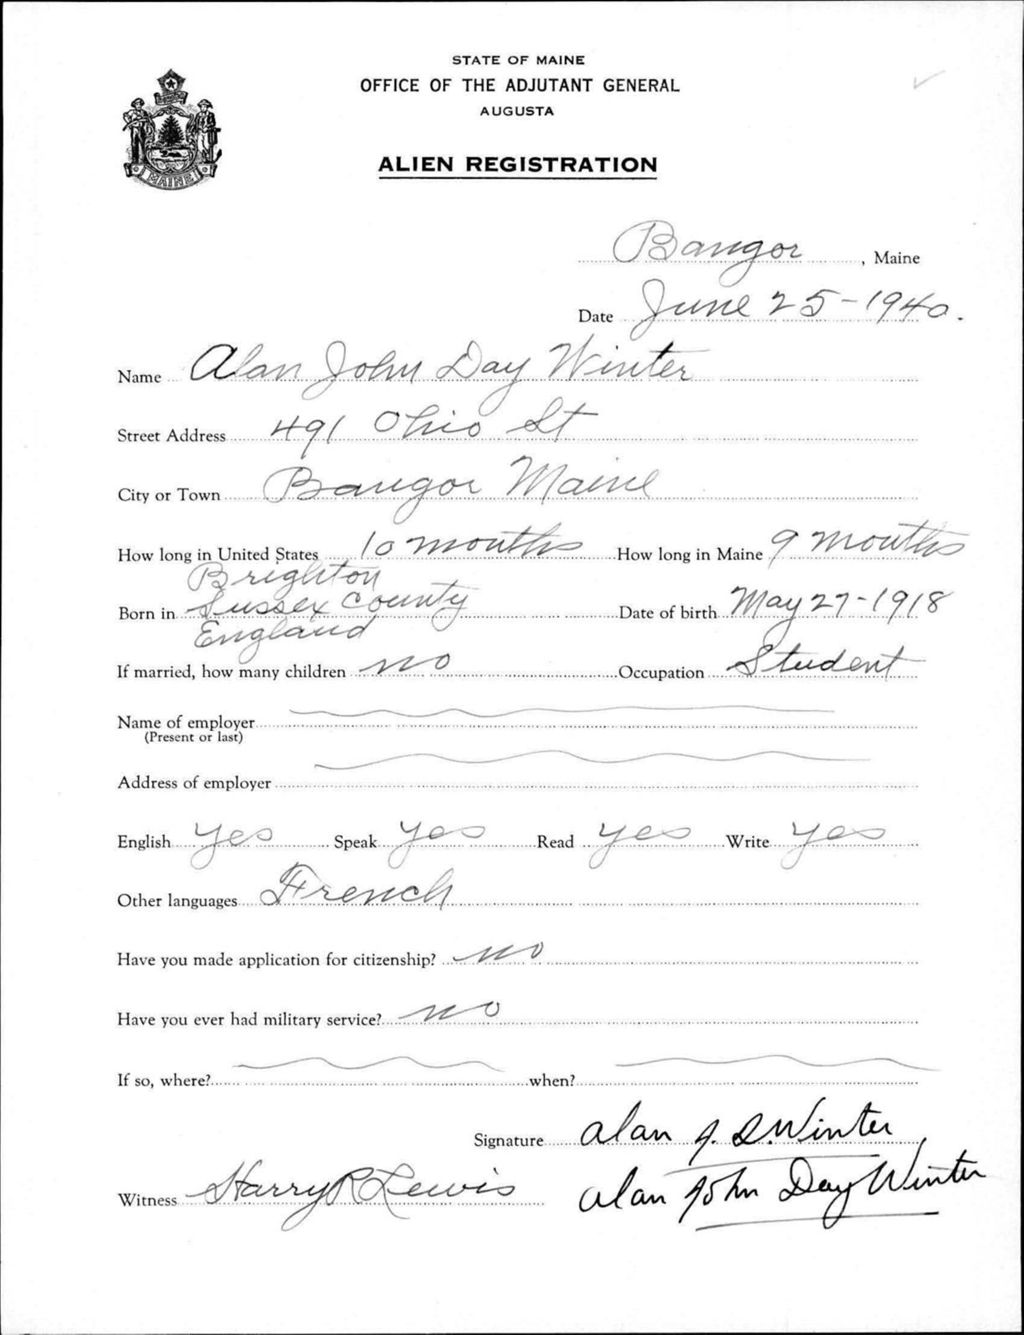 STATE OF MAINE
OFFICE OF THE ADJUTANT GENERAL
AUGUSTA
ALIEN REGISTRATION
MAINE
Bangor, Maine
Date June 25-1940.
Name Alan John Day Winter
Street Address 491 Ohio St
City or Town Bangor Maine
How long in United States 10 months How long in Maine 9 months
Brighton
Born in Sussex County Date of birth May 27-1918
England
If married, how many children no Occupation Student
Name of employer
(Present or last)
Address of employer
English Yes Speak Yes Read Yes Write Yes
Other languages French
Have you made application for citizenship? no
Have you ever had military service? no
If so, where? when?
Signature Alan J. D. Winter
Witness Harry R Lewis Alan John Day Winter